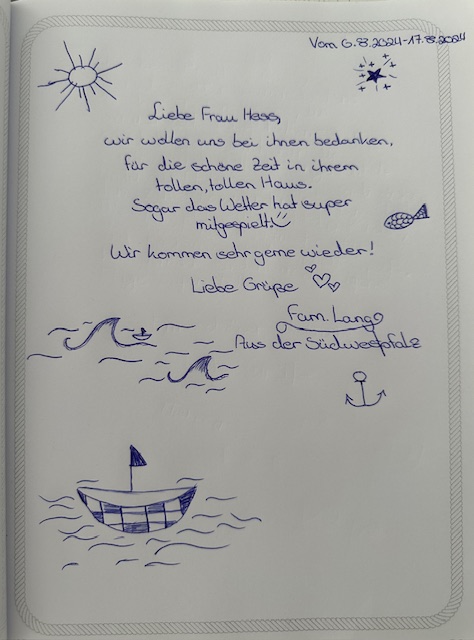 Vom 6.8.2024-17.8.2024
Liebe Frau Hess,
wir wollen uns bei ihnen bedanken,
für die schöne Zeit in ihrem
tollen, tollen Haus.
Sogar das Wetter hat super
mitgespielt!
Wir kommen sehr gerne wieder!
Liebe Grüße
Fam. Lang
Aus der Südwestpfalz